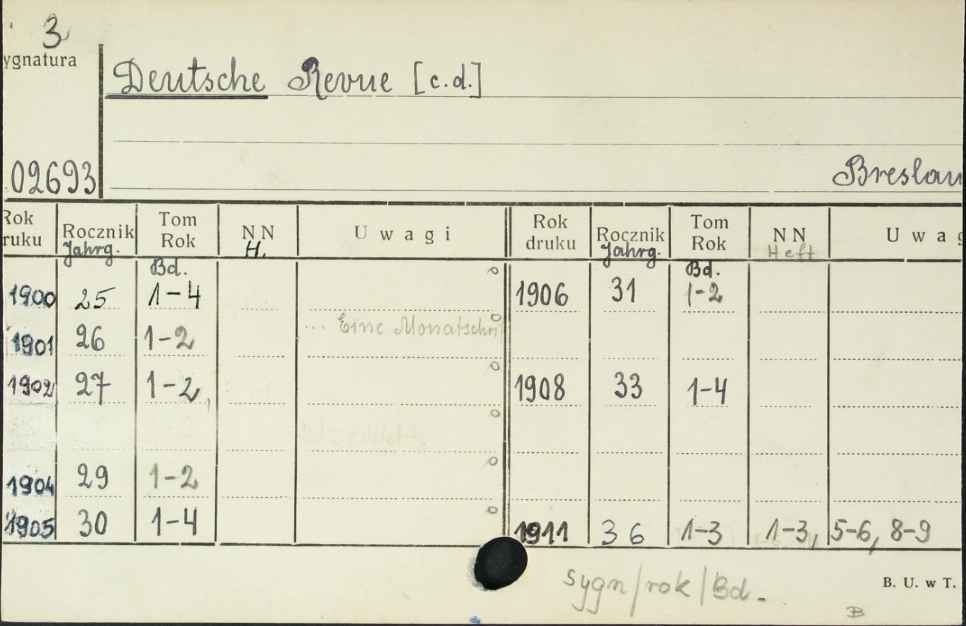 3
ygnatura
Deutsche Revue [c.d.]
02693
Breslau
Rok
ruku
Rocznik
Jahrg.
Tom
Rok
Bd.
NN
H.
Uwagi
Rok
druku
Rocznik
Jahrg.
Tom
Rok
Bd.
NN
Heft
Uwag
1900 25 1-4
1906 31 1-2
... Eine Monatschri
1901 26 1-2
1902 27 1-2
1908 33 1-4
1904 29 1-2
1905 30 1-4
1911 36 1-3 1-3, 5-6, 8-9
sygn/rok/Bd.
B. U. w T.
B